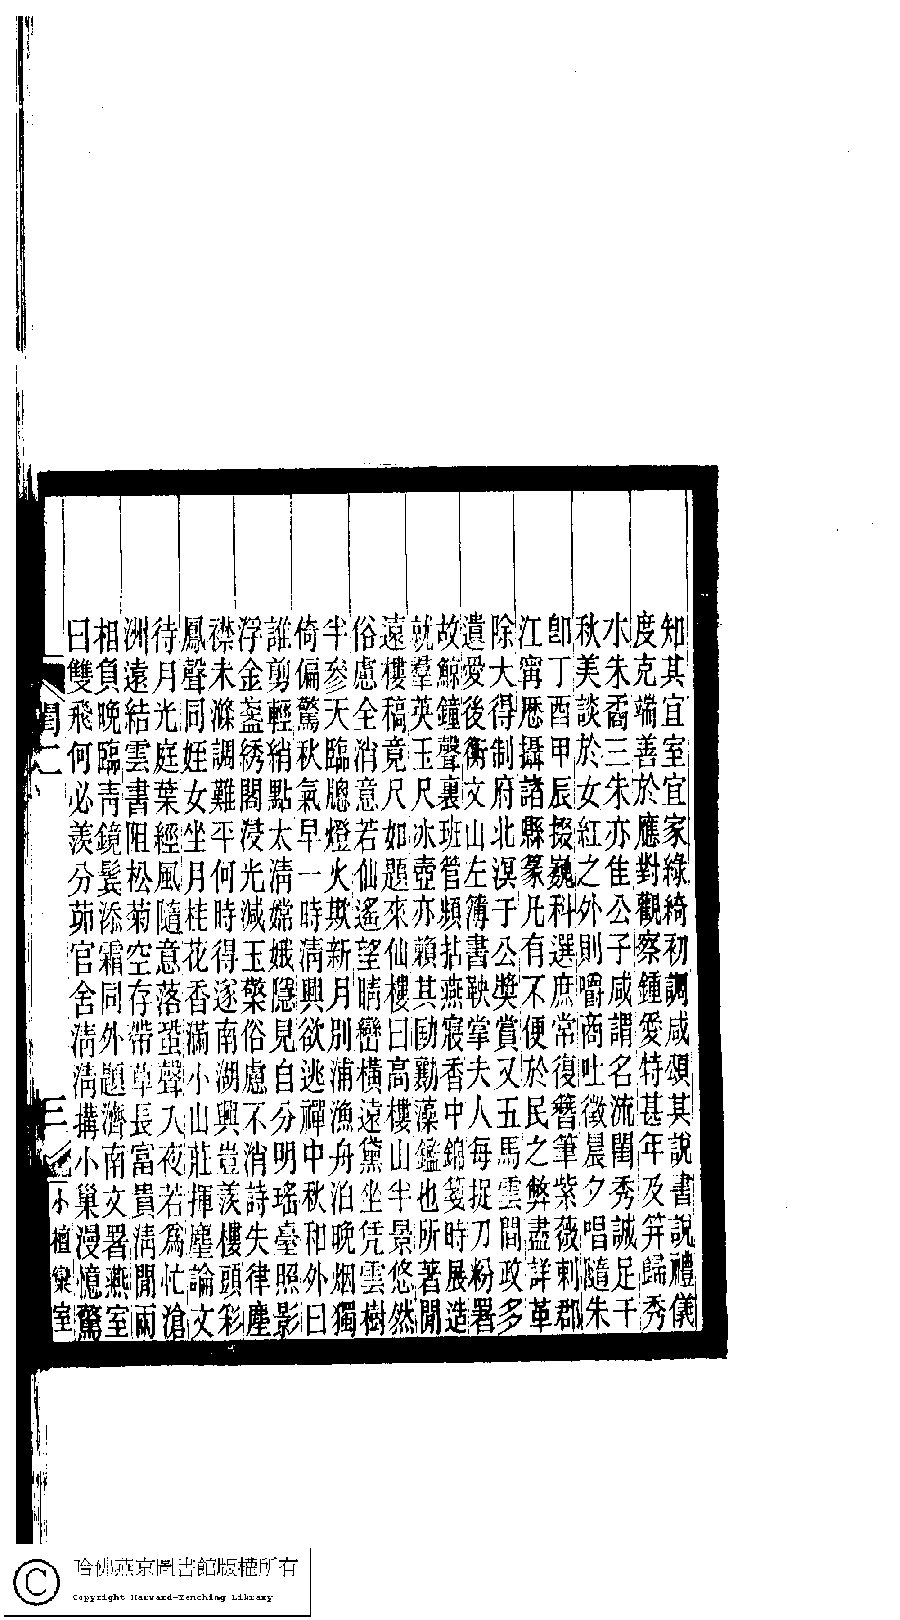 知其宜室宜家綠綺初調咸頌其說書說禮儀
度克端善於應對觀察鍾愛特甚年及笄歸秀
水朱裔三朱亦佳公子咸謂名流閨秀誠足千
秋美談於女紅之外則嚼商吐徵晨夕唱隨朱
卽丁酉甲辰掇巍科選庶常復簪筆紫薇刺郡
江甯厯攝諸縣篆凡有不便於民之弊盡詳革
除大得制府北溟于公獎賞又五馬雲間政多
遺愛後衡文山左簿書鞅掌夫人每捉刀粉署
故鯨鐘聲裏班管頻拈燕寢香中錦箋時展造
就羣英玉尺冰壺亦賴其勷勷藻鑑也所著閒
遠樓稿竟尺如題來仙樓曰高樓山半景悠然
俗慮全消意若仙遙望晴巒橫遠黛坐凭雲樹
半參天臨牕燈火欺新月別浦漁舟泊晚烟獨
倚偏驚秋氣早一時清興欲逃禪中秋和外曰
誰剪輕綃點太清嫦娥隱見自分明瑤臺照影
浮金盞綉閣浸光減玉檠俗慮不消詩失律塵
襟未滌調難平何時得逐南湖興豈羨樓頭彩
鳳聲同姪女坐月桂花香滿小山莊揮麈論文
待月光庭葉經風隨意落蛩聲入夜若為忙滄
洲遠結雲書阻松菊空存帶草長富貴清閒兩
相負晚臨青鏡鬢添霜同外題濟南文署燕室
曰雙飛何必羨分茆官舍清清搆小巢漫憶驚
閏二
三
小檀欒室
哈佛燕京圖書館版權所有
Copyright Harvard-Yenching Library